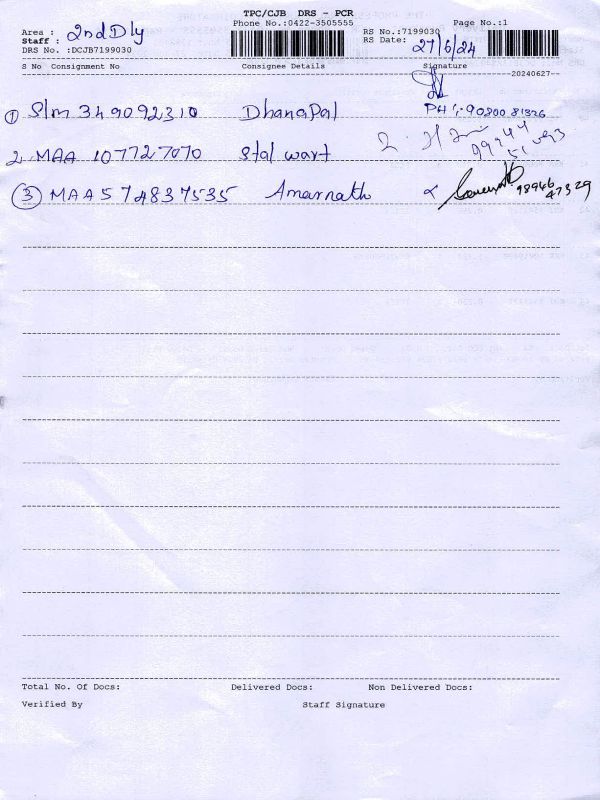 TPC/CJB DRS - PCR
Phone No.:0422-3505555 Page No.:1
Area : 2nd Dly
Staff :
RS No.:7199030
RS Date: 27/6/24
DRS No. :DCJB7199030
S No Consignment No Consignee Details Signature
20240627
① Slm 349092310 Dhanapal PH: 90800 81326
2. MAA 107727070 Stalwart 2. 99244
③ MAA 574837535 Amarnath 98946
47329
Total No. Of Docs: Delivered Docs: Non Delivered Docs:
Verified By Staff Signature